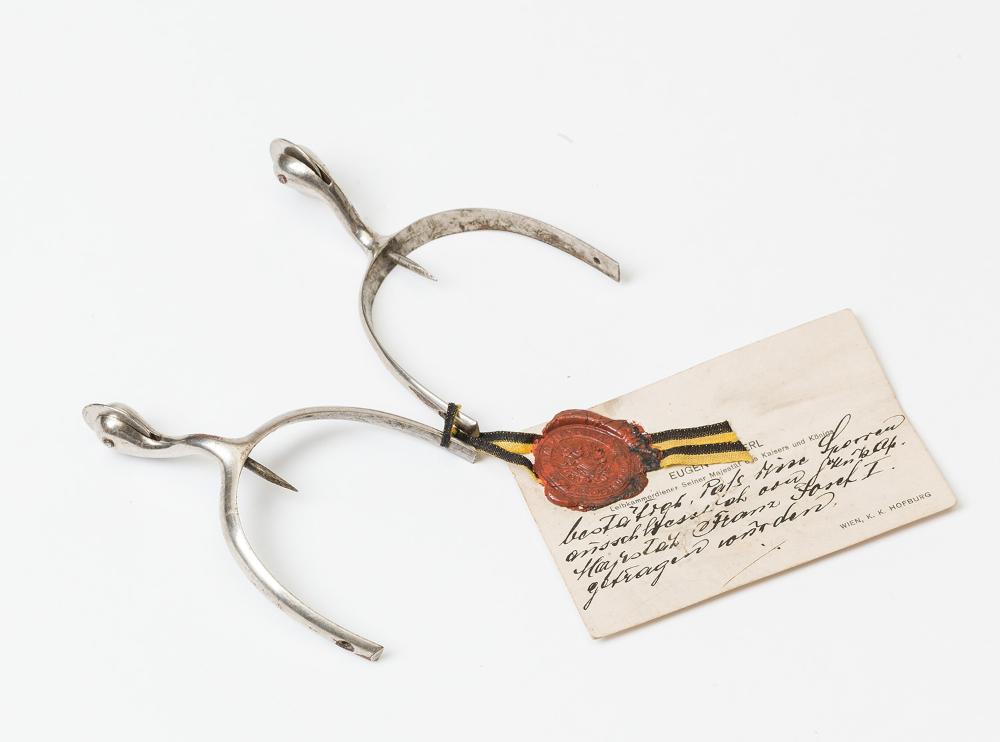 EUGEN ERL
Leibkammerdiener Seiner Majestät des Kaisers und Königs
bestätigt, daß diese Sporren
ausschliesslich von
Majestät Franz Josef I.
getragen wurden.
WIEN, K. K. HOFBURG